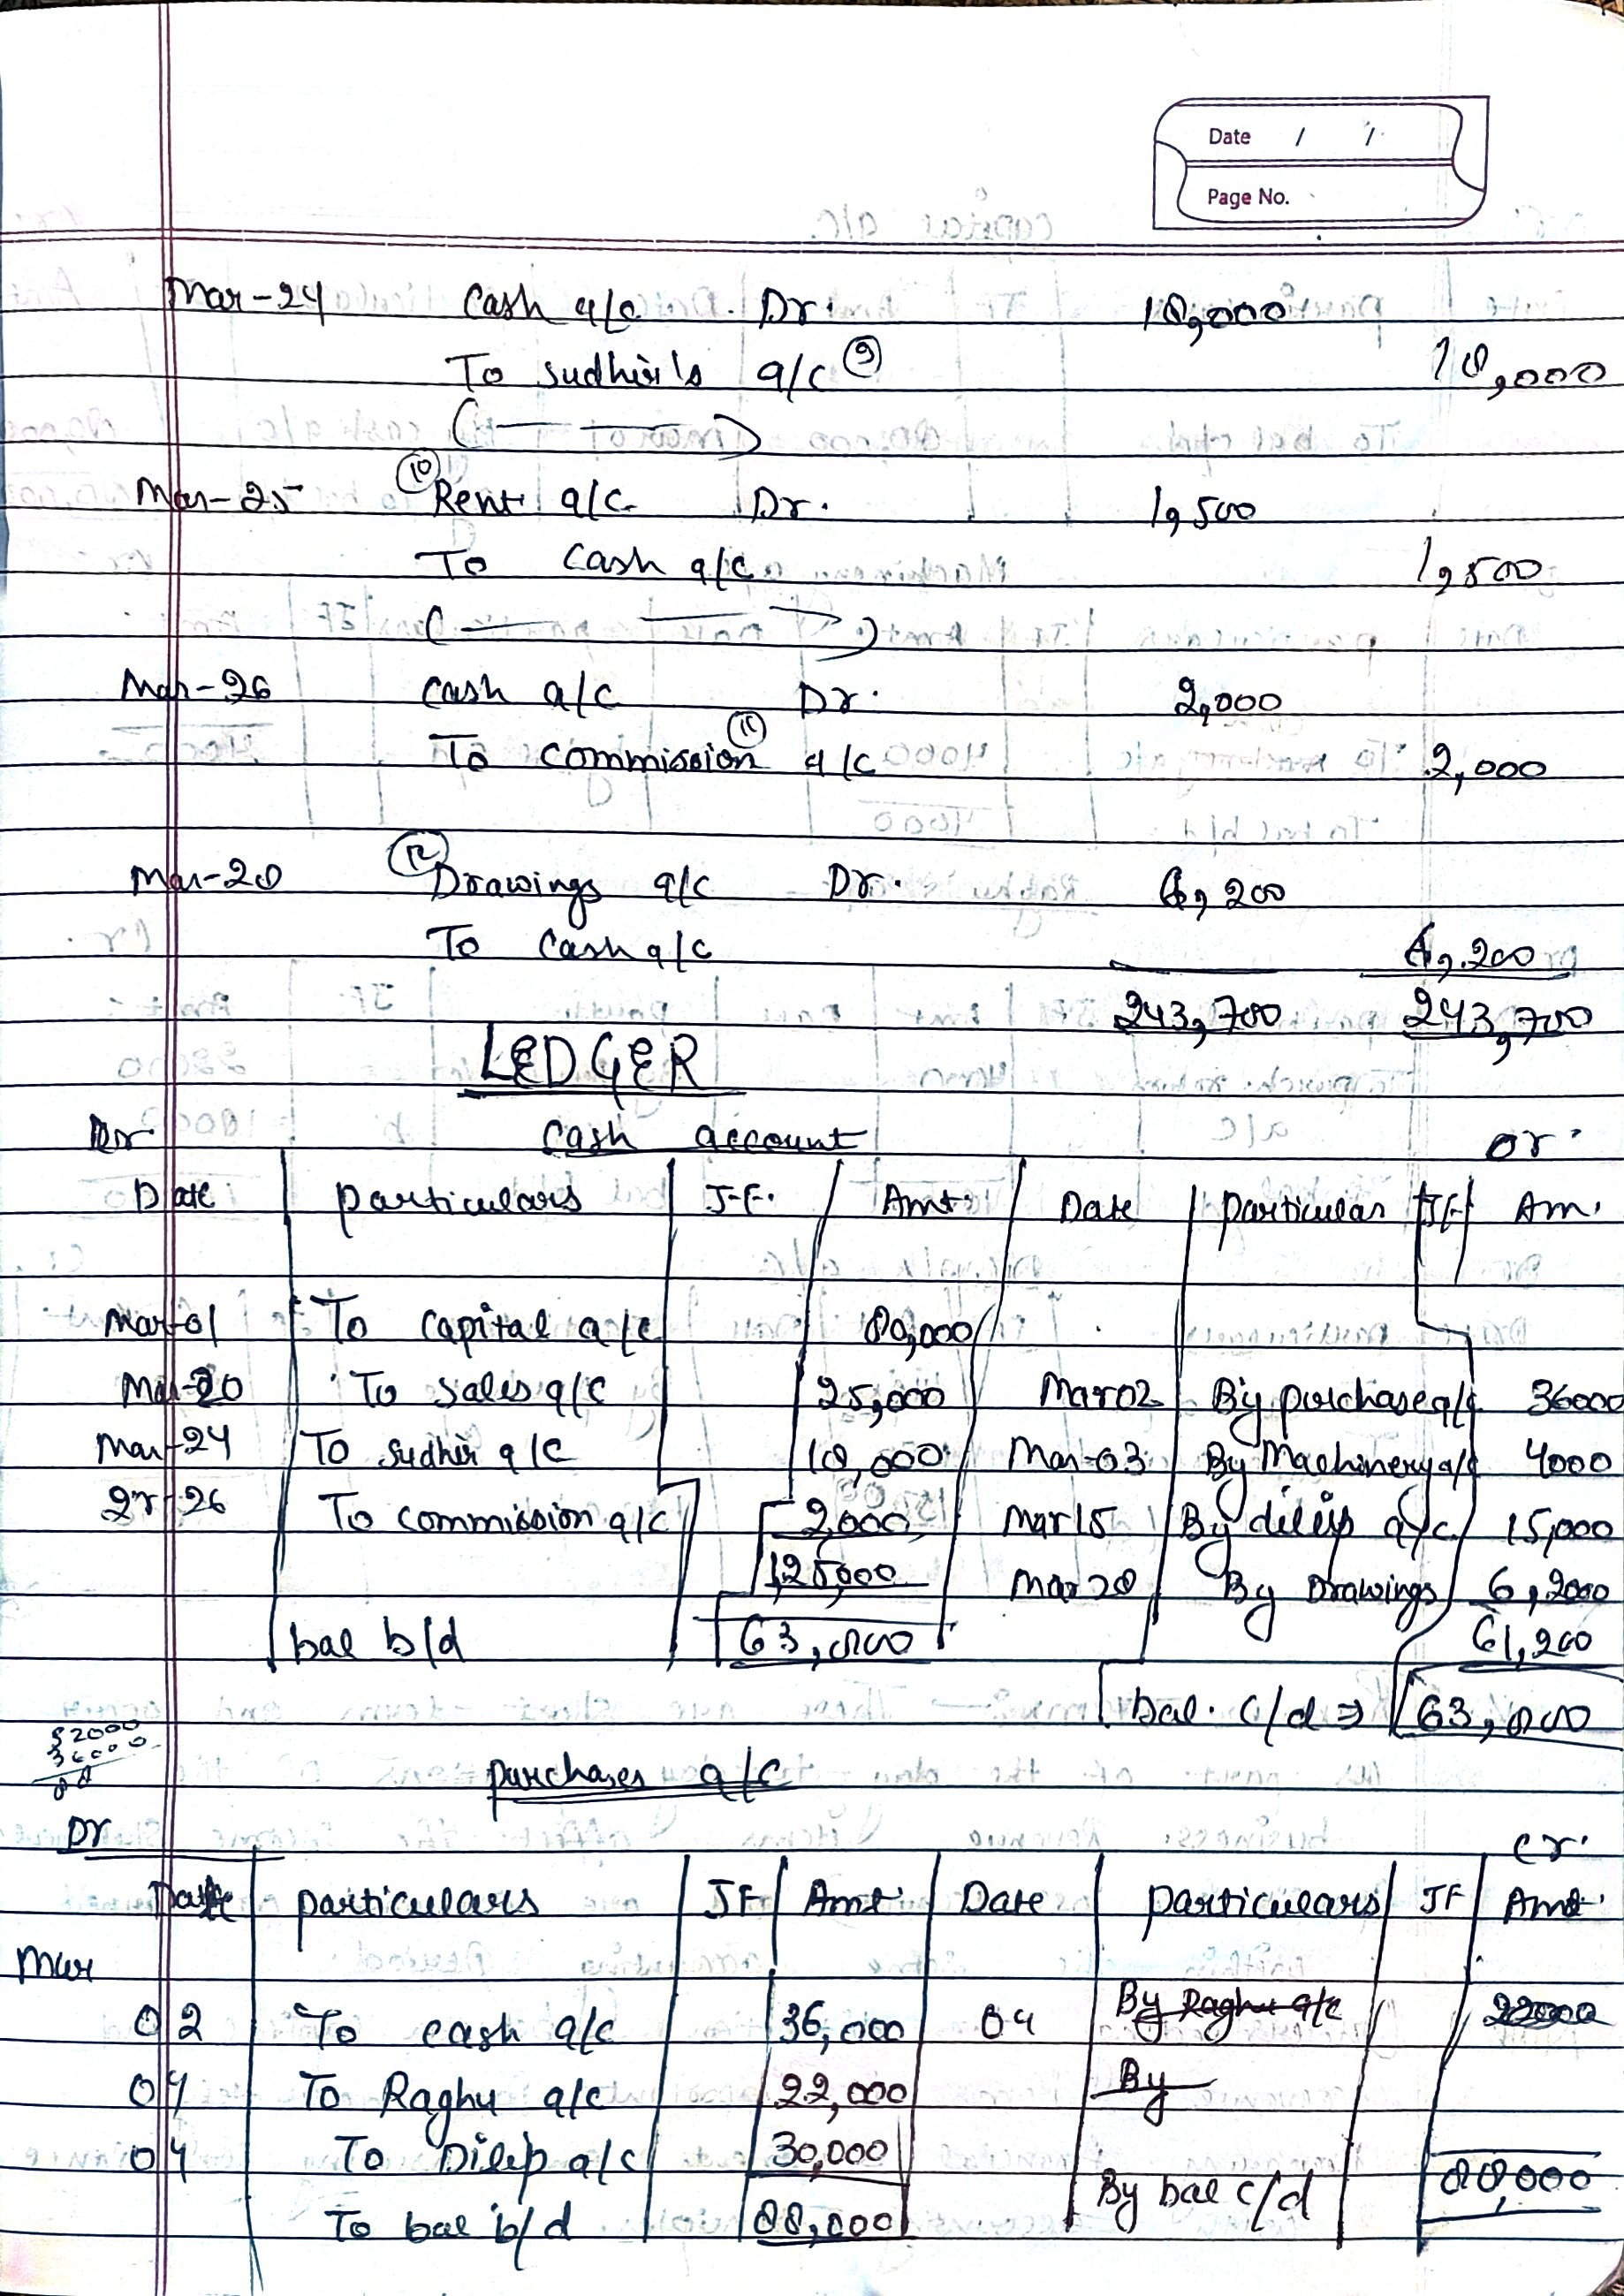 Date / /
Page No.
Mar-24 Cash a/c. Dr. 18,000
To Sudhir's a/c ⑨ 18,000
Mar-25 ⑩ Rent a/c. Dr. 1,500
To Cash a/c 1,500
Mar-26 Cash a/c Dr. 2,000
To commission ⑪ a/c 2,000
Mar-28 ⑫ Drawings a/c Dr. 6,200
To Cash a/c 6,200
243,700 243,700
LEDGER
Dr Cash account cr.
Date particulars J.F. Amt. Date particular JF Am.
Mar-01 To capital a/c 80,000
Mar-20 To sales a/c 25,000 Mar 02 By purchase a/c 36000
Mar-24 To Sudhir a/c 18,000 Mar-03 By Machinery a/c 4000
26 To commission a/c 2,000 Mar 15 By dilip a/c 15,000
1,25,000 Mar 28 By Drawings 6,2000
bal b/d 63,800 61,200
bal. c/d ⇒ 63,800
52000
36000
88
purchases a/c
Dr cr.
Date particulars JF Amt. Date particulars JF Amt.
Mar
02 To cash a/c 36,000 04 By Raghu a/c 22000
04 To Raghu a/c 22,000 By
04 To Dilip a/c 30,000
To bal b/d 88,000 By bal c/d 88,000